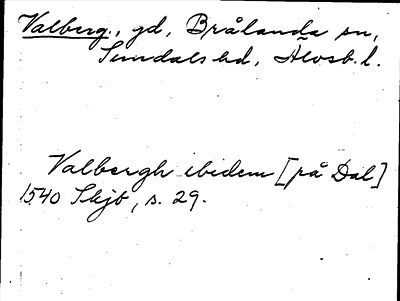 Valberg., gd, Brålanda sn,
Sundals hd, Älvsb. l.
Valbergh ibidem [på Dal]
1540 Skjb, s. 29.